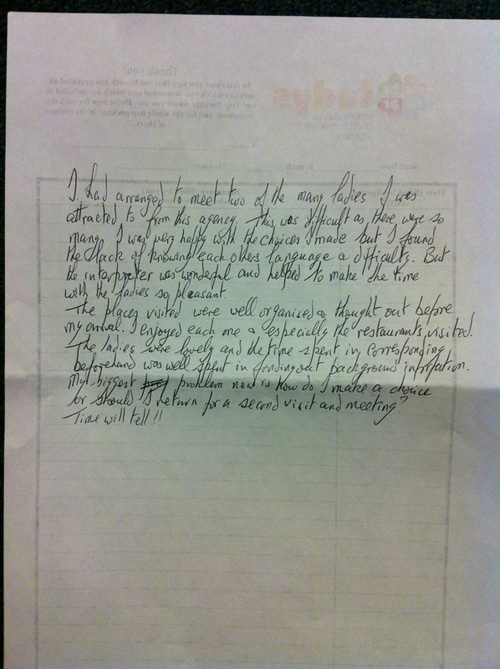 I had arranged to meet two of the many ladies I was
attracted to from this agency. This was difficult as there were so
many. I was very happy with the choices I made but I found
the lack of knowing each others language a difficulty. But
the interpreter was wonderful and helped to make the time
with the ladies so pleasant.
The places visited were well organised & thought out before
my arrival. I enjoyed each one & especially the restaurants visited.
The ladies were lovely and the time spent in corresponding
beforehand was well spent in finding out background information.
My biggest problem now is how do I make a choice
or should I return for a second visit and meeting?
Time will tell!!